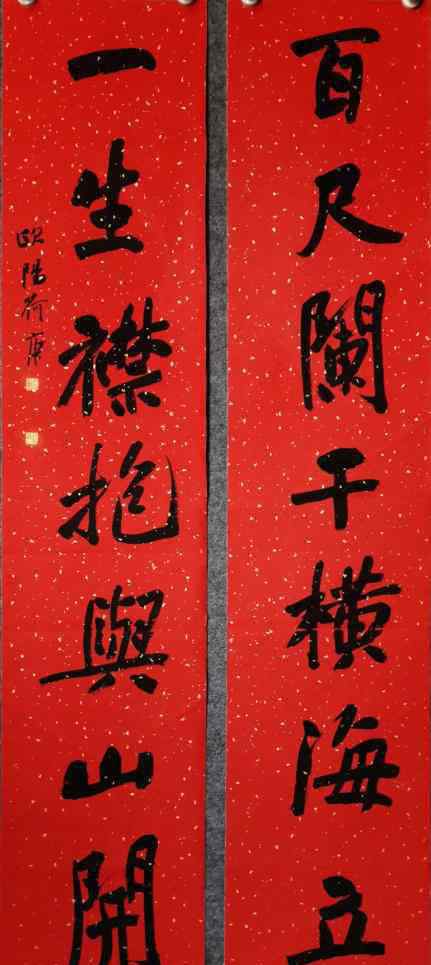 百尺闌干橫海立
一生襟抱與山開
歐陽荷庚